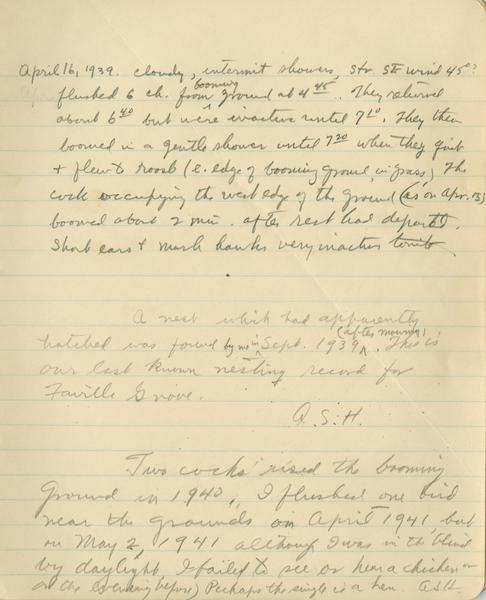 April 16, 1939. cloudy, intermit showers, str. SE wind 45°?
flushed 6 ch. from booming ground at 4 45. They returned
about 6 40 but were inactive until 7 10. They then
boomed in a gentle shower until 7 30 when they quit
& flew to roost (E. edge of booming ground, in grass) The
cock occupying the west edge of the ground (as on Apr. 15)
boomed about 2 min. after rest had departed.
Short ears & marsh hawks very inactive tonite
A nest which had apparently
hatched was found by me in Sept. 1939 (after mowing). This is
our last known nesting record for
Faville Grove.
A.S.H.
Two cocks used the booming
Ground in 1940, I flushed one bird
near the grounds in April 1941 but
on May 2, 1941 although I was in the blind
by daylight I failed to see or hear a chicken or
on the evening before) Perhaps the single is a hen. ASH.